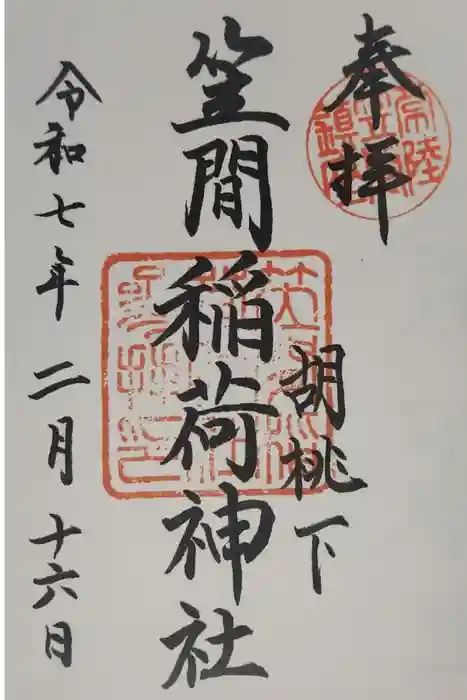 奉拝
胡桃下
笠間稲荷神社
令和七年 二月 十六日